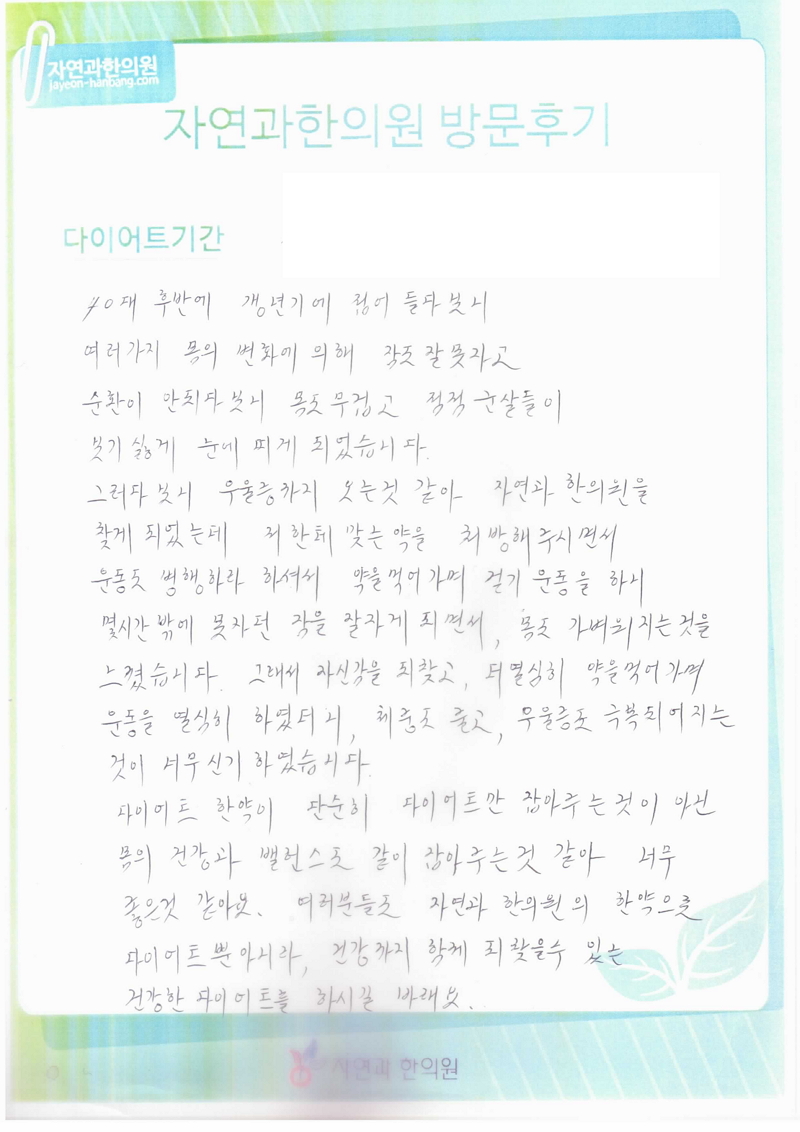 자연과한의원
jayeon-hanbang.com
자연과한의원 방문후기
다이어트기간
40대 후반에 갱년기에 접어 들다보니
여러가지 몸의 변화에 의해 잠도 잘못자고
순환이 안되다보니 몸도 무겁고 점점 군살들이
보기 싫게 눈에 띄게 되었습니다.
그러다보니 우울증까지 오는것 같아 자연과 한의원을
찾게 되었는데 저한테 맞는약을 처방해주시면서
운동도 병행하라 하셔서 약을먹어가며 걷기 운동을 하니
몇시간 밖에 못자던 잠을 잘자게 되면서, 몸도 가벼워지는것을
느꼈습니다. 그래서 자신감을 되찾고, 더열심히 약을먹어가며
운동을 열심히 하였더니, 체중도 줄고, 우울증도 극복되어지는
것이 너무신기하였습니다.
다이어트 한약이 단순히 다이어트만 잡아주는것이 아닌
몸의 건강과 밸런스도 같이 잡아주는것 같아 너무
좋은것 같아요. 여러분들도 자연과 한의원의 한약으로
다이어트뿐아니라, 건강까지 함께 되찾을수 있는
건강한 다이어트를 하시길 바래요.
자연과 한의원